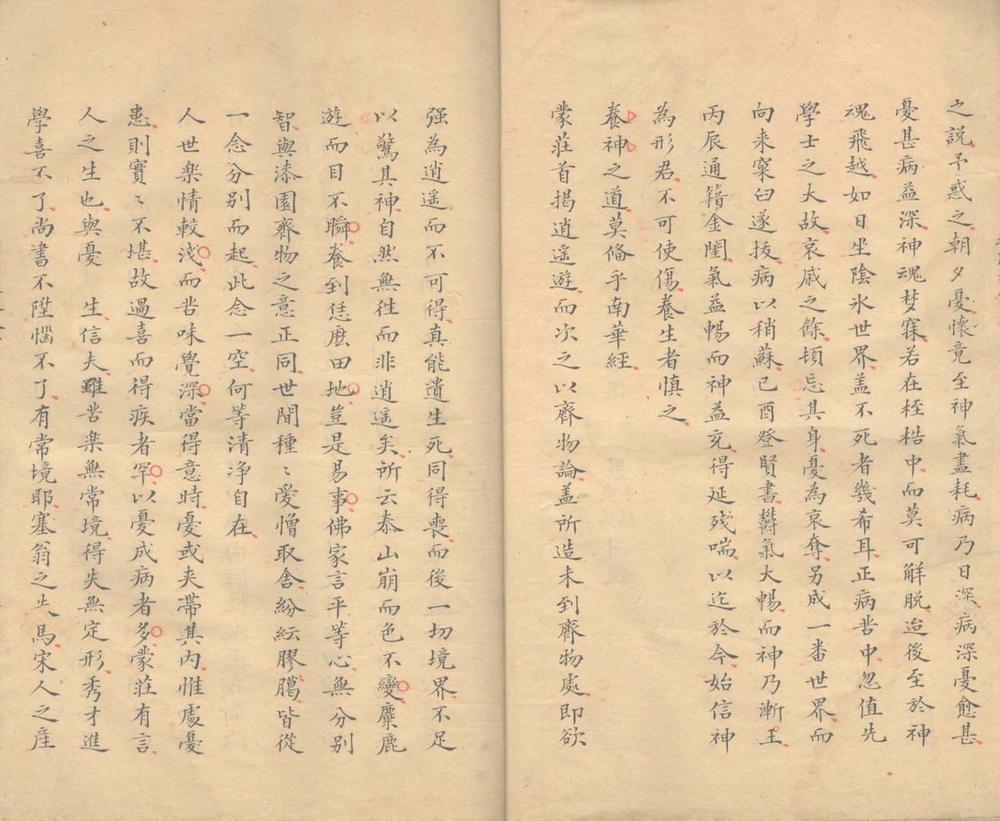 之説予惑之朝夕憂懷竟至神氣盡耗病乃日深病深憂愈甚
憂甚病益深神魂梦寐若在桎梏中而莫可解脱迨後至於神
魂飛越如日坐陰氷世界盖不死者幾希耳正病苦中忽值先
學士之大故哀戚之餘頓忘其身憂為哀奪另成一番世界而
向来窠臼遂拔病以稍蘇已酉登賢書欝氣大暢而神乃漸王
丙辰通籍金閨氣益暢而神益充得延残喘以迄於今始信神
為形君不可使傷養生者慎之
養神之道莫俻乎南華經
蒙莊首揭逍遥遊而次之以齊物論盖所造未到齊物處即欲
强為逍遥而不可得真能遺生死同得喪而後一切境界不足
以驚其神自然無徃而非逍遥矣所云泰山崩而色不變麋鹿
遊而目不瞬養到恁麽田地豈是易事佛家言平等心無分别
智與漆園齊物之意正同世間種〻愛憎取舎紛紜膠膓皆從
一念分别而起此念一空何等清净自在
人世楽情較浅而苦味覺深當得意時憂或夹帶其内惟處憂
患則實〻不堪故過喜而得疾者罕以憂成病者多蒙莊有言
人之生也與憂 生信夫雖苦楽無常境得失無定形秀才進
學喜不了尚書不陞惱不了有常境耶塞翁之失馬宋人之産